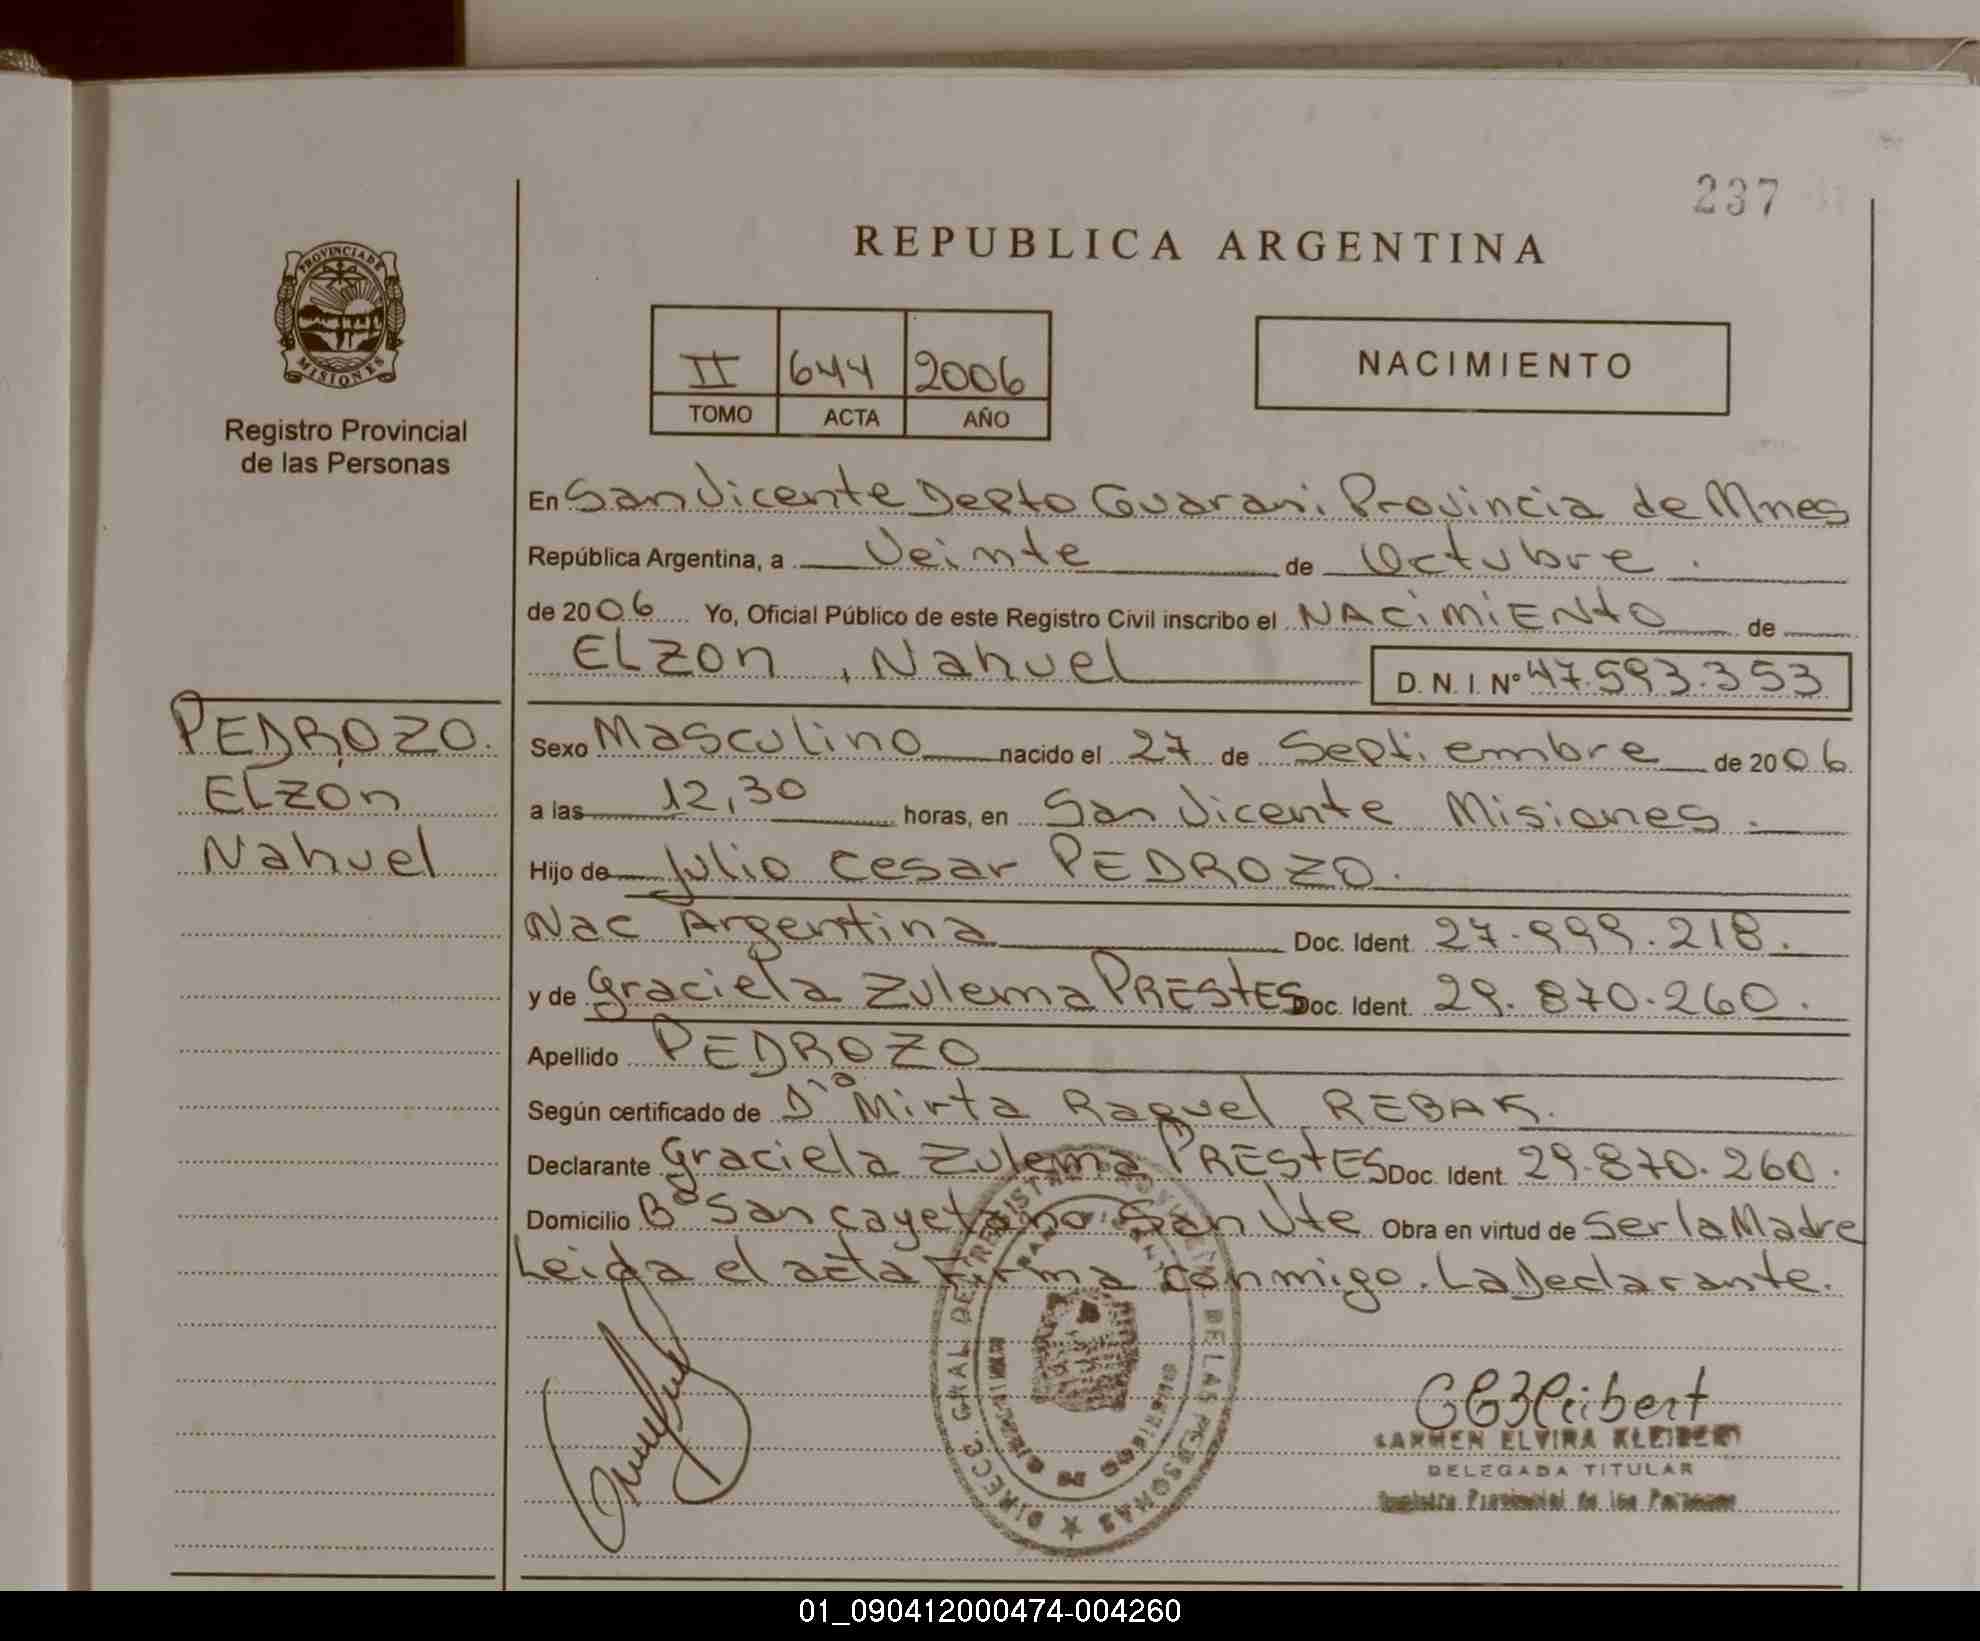 237
REPUBLICA ARGENTINA
PROVINCIA DE
MISIONES
Registro Provincial
de las Personas
II 644 2006
TOMO ACTA AÑO
NACIMIENTO
En San Vicente Depto Guarani Provincia de Mnes
República Argentina, a Veinte de Octubre.
de 2006 Yo, Oficial Público de este Registro Civil inscribo el NACIMIENTO de
ELZON, Nahuel D. N. I. Nº 47.593.353
PEDROZO.
ELZON
Nahuel
Sexo Masculino nacido el 27 de Septiembre de 2006
a las 12,30 horas, en San Vicente Misiones.
Hijo de Julio Cesar PEDROZO.
Nac Argentina Doc. Ident. 27.999.218.
y de Graciela Zulema PRESTES Doc. Ident. 29.870.260.
Apellido PEDROZO
Según certificado de Dª Mirta Raquel REBAK.
Declarante Graciela Zulema PRESTES Doc. Ident. 29.870.260.
Domicilio Bº San cayetano San Vte Obra en virtud de Ser la Madre
Leida el acta firma conmigo. La Declarante.
DIRECC. GRAL. DEL REGISTRO PROVINCIAL DE LAS PERSONAS
CARMEN ELVIRA KLEIBERT
DELEGADA TITULAR
Registro Provincial de las Personas
01_090412000474-004260